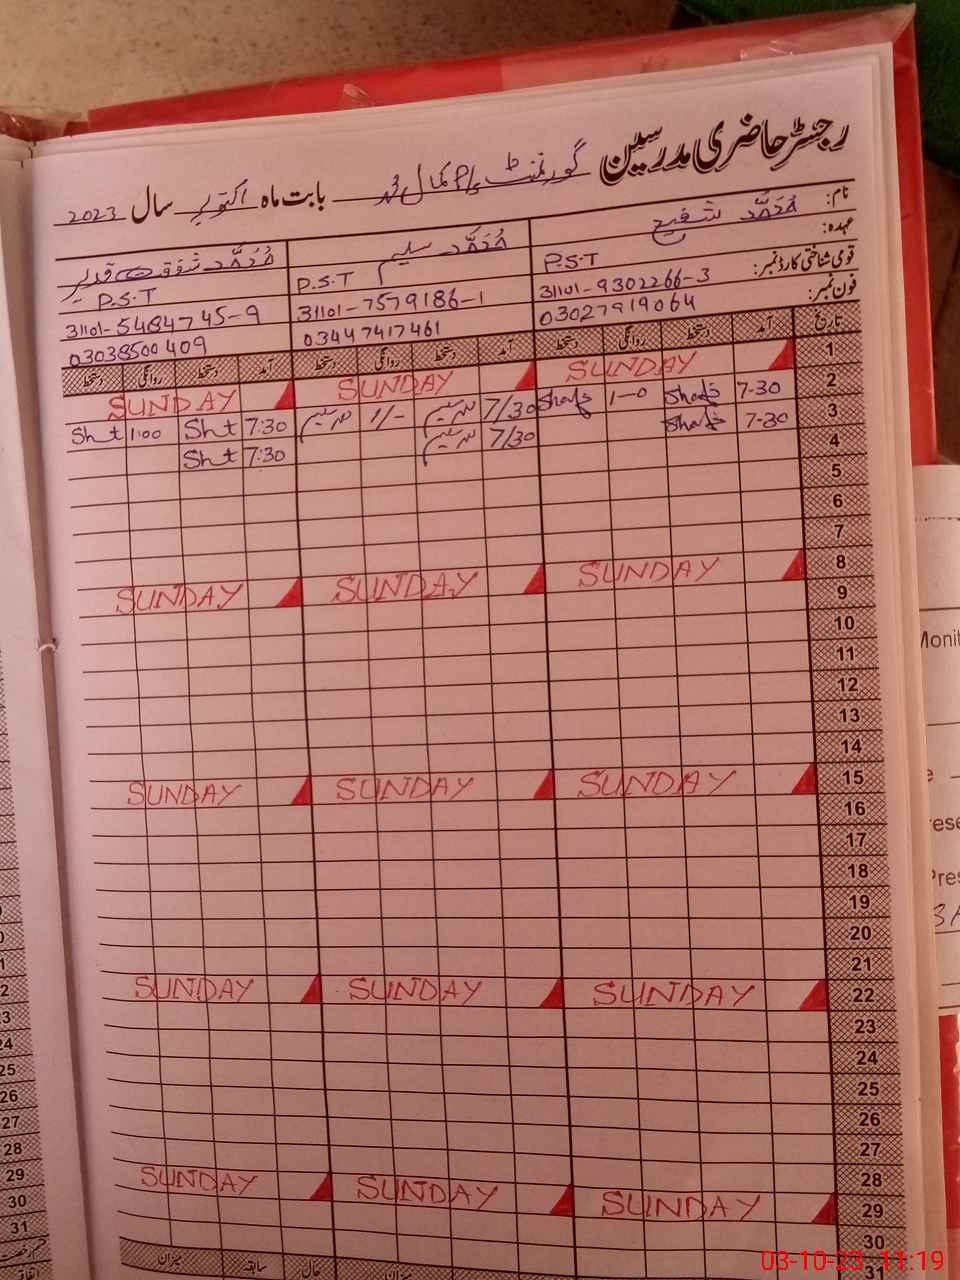 رجسٹر حاضری مدرسین گورنمنٹ P/S کمال محمد بابت ماہ اکتوبر سال 2023
نام: مُحَمَّد شفیح مُحَمَّد سلیم مُحَمَّد شفقت قدیر
عہدہ: P.S.T P.S.T P.S.T
قومی شناختی کارڈ نمبر: 31101-9302266-3 31101-7579186-1 31101-5484745-9
فون نمبر: 03027919064 03447417461 03038500409
تاریخ آمد دستخط روانگی دستخط آمد دستخط روانگی دستخط آمد دستخط روانگی دستخط
1 SUNDAY SUNDAY SUNDAY
2 7-30 1-0 7/30 1/- 7:30 Sht 1:00 Sht
3 7-30 7/30 7:30 Sht
4
5
6
7
8 SUNDAY SUNDAY SUNDAY
9
10
11
12
13
14
15 SUNDAY SUNDAY SUNDAY
16
17
18
19
20
21
22 SUNDAY SUNDAY SUNDAY
23
24
25
26
27
28
29 SUNDAY SUNDAY SUNDAY
30
31
میزان سابقہ حال میزان
23
24
25
26
27
28
29
30
31
03-10-23 11:19